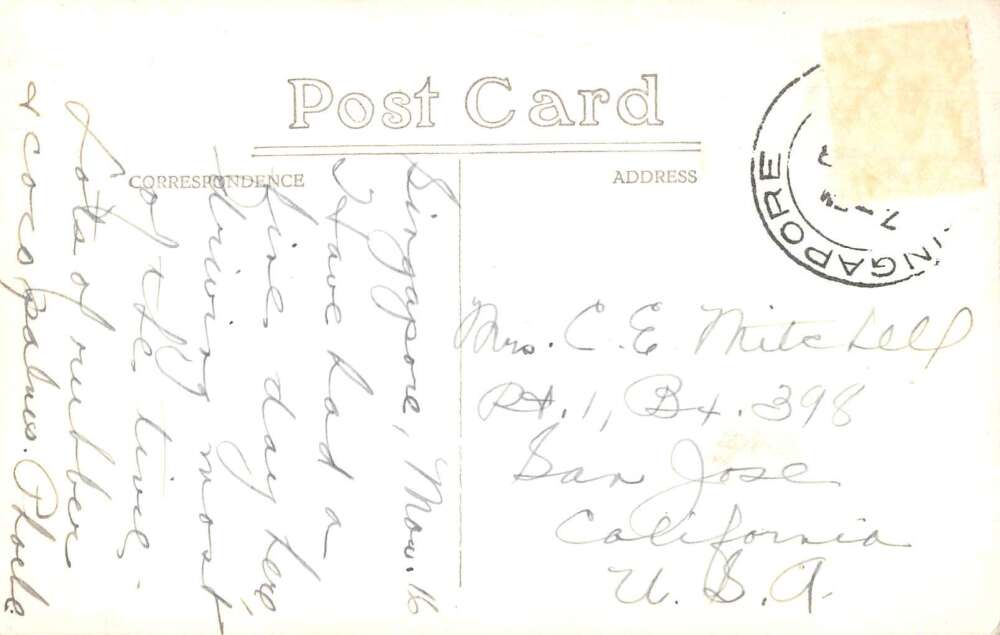 Post Card
CORRESPONDENCE
ADDRESS
Singapore, Nov. 16
Have had a
fine day here
driving most
of the time,
Lots of rubber
& coco palms. Phoebe
Mrs. C. E. Mitchell
Rt. 1, Bx. 398
San Jose
California
U. S. A.
INGAPORE
7-PM